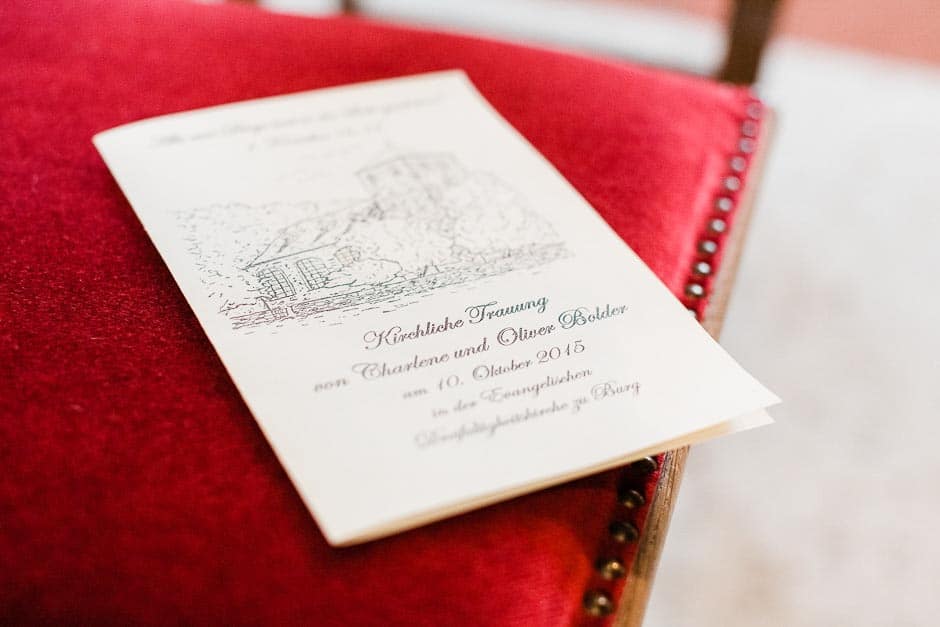 Kirchliche Trauung
von Charlene und Oliver Bolder
am 10. Oktober 2015
in der Evangelischen
Dreifaltigkeitskirche zu Burg